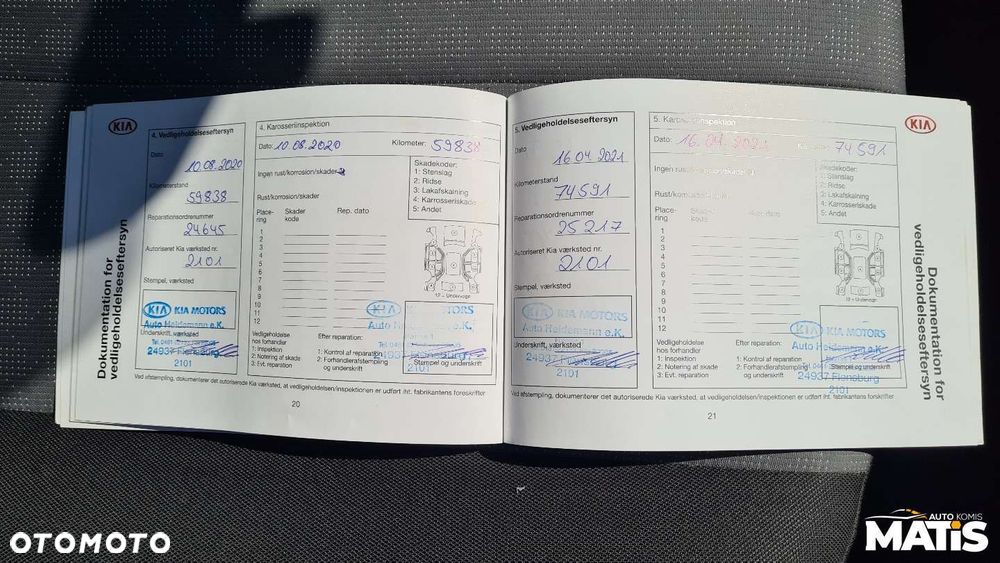 KIA
Dokumentation for
vedligeholdelseseftersyn
4. Vedligeholdelseseftersyn
Dato
10.08.2020
Kilometerstand
59838
Reparationsordrenummer
24645
Autoriseret Kia værksted nr.
2101
Stempel, værksted
KIA KIA MOTORS
Auto Heidemann e.K.
Underskrift, værksted
24937 Flensburg
2101
4. Karosseriinspektion
Dato: 10.08.2020 Kilometer: 59838
Ingen rust/korrosion/skader
Skadekoder:
1: Stenslag
2: Ridse
3: Lakafskalning
4: Karrosseriskade
5: Andet
Rust/korrosion/skader
Place-
ring
Skader
kode
Rep. dato
1
2
3
4
5
6
7
8
9
10
11
12
12 = Undervogn
KIA KIA MOTORS
Auto
24937 Flensburg
2101
Vedligeholdelse
hos forhandler
1: Inspektion
2: Notering af skade
3: Evt. reparation
Efter reparation:
1: Kontrol af reparation
2: Forhandlerafstempling
og underskrift
Stempel og underskrift
Ved afstempling, dokumenterer det autoriserede Kia værksted, at vedligeholdelsen/inspektionen er udført iht. fabrikantens forskrifter
20
5. Vedligeholdelseseftersyn
Dato
16.04.2021
Kilometerstand
74591
Reparationsordrenummer
25217
Autoriseret Kia værksted nr.
2101
Stempel, værksted
KIA KIA MOTORS
Auto Heidemann e.K.
Underskrift, værksted
24937
2101
5. Karosseriinspektion
Dato: 16.04.2021 Kilometer: 74591
Ingen rust/korrosion/skader
Skadekoder:
1: Stenslag
2: Ridse
3: Lakafskalning
4: Karrosseriskade
5: Andet
Rust/korrosion/skader
Place-
ring
Skader
kode
Rep. dato
1
2
3
4
5
6
7
8
9
10
11
12
12 = Undervogn
KIA KIA MOTORS
Auto Heidemann e.K.
24937 Flensburg
2101
Vedligeholdelse
hos forhandler
1: Inspektion
2: Notering af skade
3: Evt. reparation
Efter reparation:
1: Kontrol af reparation
2: Forhandlerafstempling
og underskrift
Stempel og underskrift
Ved afstempling, dokumenterer det autoriserede Kia værksted, at vedligeholdelsen/inspektionen er udført iht. fabrikantens forskrifter
21
KIA
Dokumentation for
vedligeholdelseseftersyn
OTOMOTO
AUTO KOMIS
MATIS